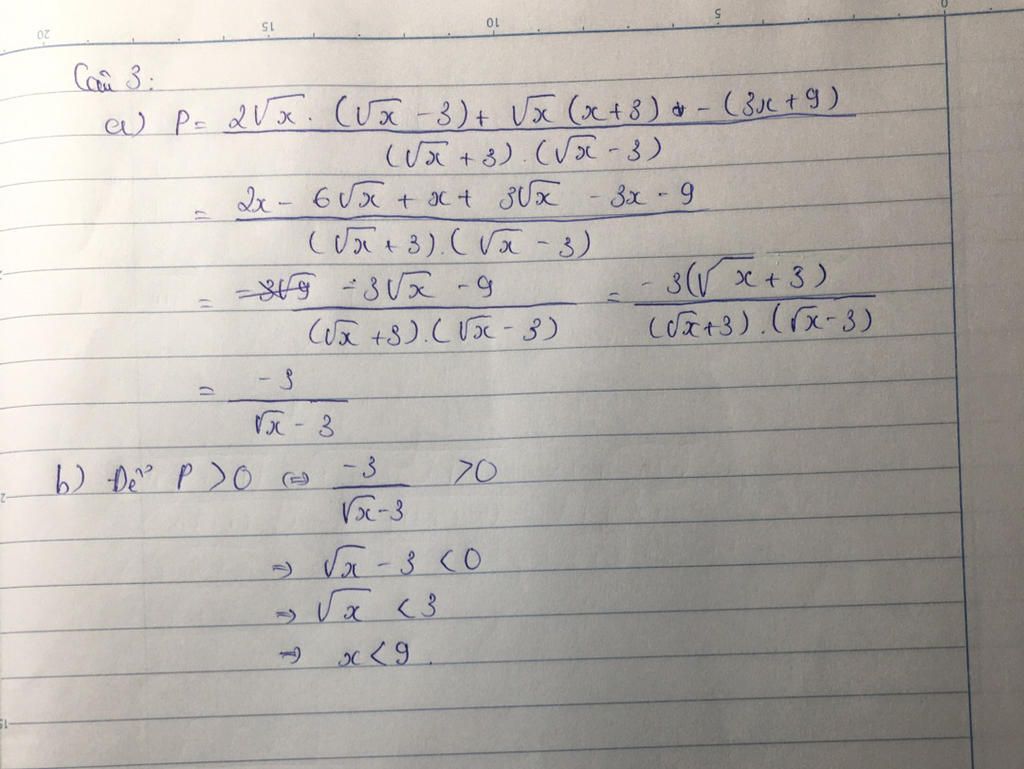 20 15 10 5 0
Câu 3:
a) P = \frac{2\sqrt{x} . (\sqrt{x} - 3) + \sqrt{x} (x + 3) - (3x + 9)}{(\sqrt{x} + 3) . (\sqrt{x} - 3)}
= \frac{2x - 6\sqrt{x} + x + 3\sqrt{x} - 3x - 9}{(\sqrt{x} + 3) . (\sqrt{x} - 3)}
= \frac{-3\sqrt{x} - 9}{(\sqrt{x} + 3) . (\sqrt{x} - 3)} = \frac{-3(\sqrt{x} + 3)}{(\sqrt{x} + 3) . (\sqrt{x} - 3)}
= \frac{-3}{\sqrt{x} - 3}
b) Để P > 0 ⇔ \frac{-3}{\sqrt{x} - 3} > 0
⇒ \sqrt{x} - 3 < 0
⇒ \sqrt{x} < 3
⇒ x < 9.